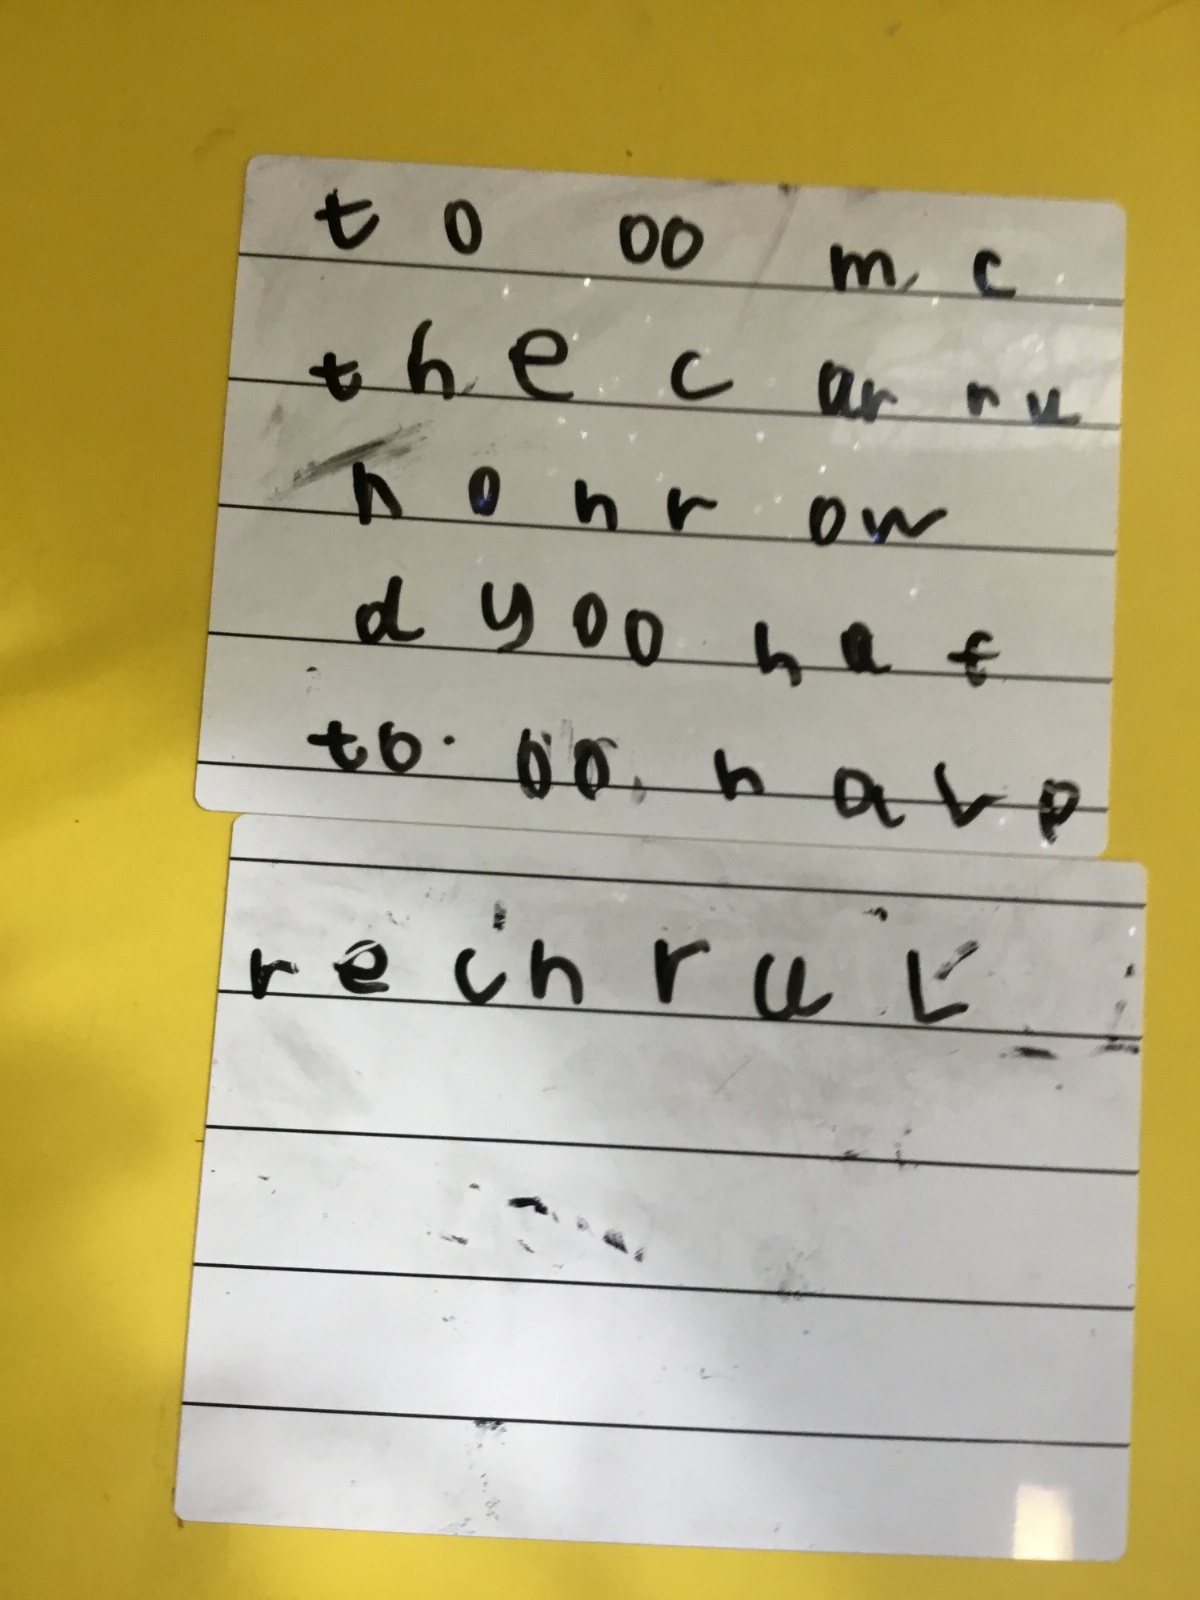 to oo m c
the c ar ru
n o n r ow
d yoo h a t
to. oo. n a v p
r e c h r u c